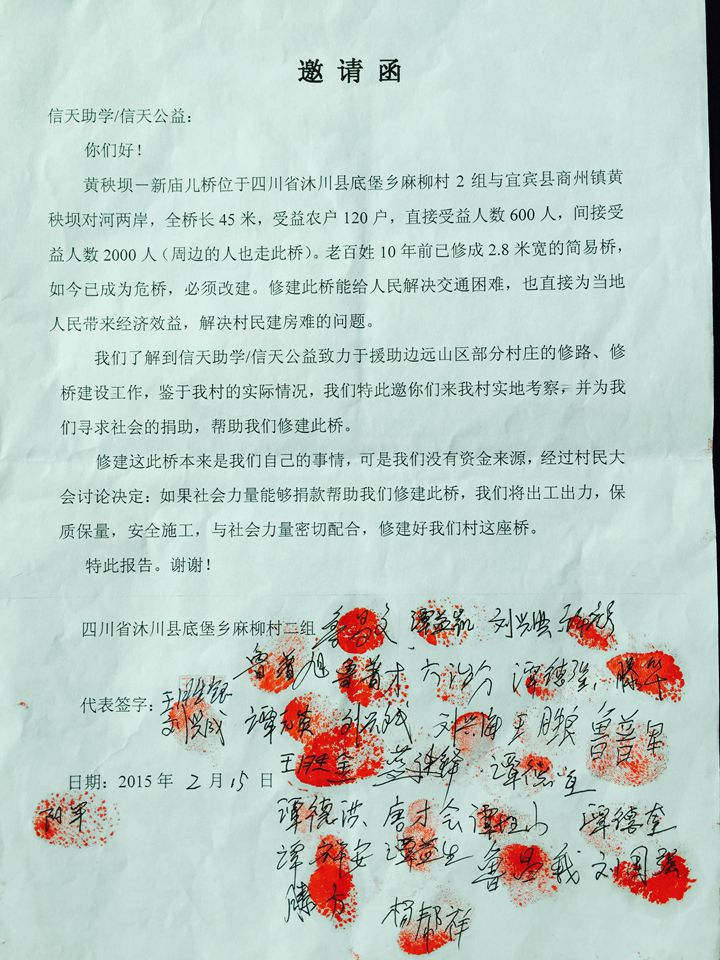 邀请函
信天助学/信天公益：
你们好！
黄秧坝－新庙儿桥位于四川省沐川县底堡乡麻柳村 2 组与宜宾县商州镇黄
秧坝对河两岸，全桥长 45 米，受益农户 120 户，直接受益人数 600 人，间接受
益人数 2000 人（周边的人也走此桥）。老百姓 10 年前已修成 2.8 米宽的简易桥，
如今已成为危桥，必须改建。修建此桥能给人民解决交通困难，也直接为当地
人民带来经济效益，解决村民建房难的问题。
我们了解到信天助学/信天公益致力于援助边远山区部分村庄的修路、修
桥建设工作，鉴于我村的实际情况，我们特此邀你们来我村实地考察，并为我
们寻求社会的捐助，帮助我们修建此桥。
修建这此桥本来是我们自己的事情，可是我们没有资金来源，经过村民大
会讨论决定：如果社会力量能够捐款帮助我们修建此桥，我们将出工出力，保
质保量，安全施工，与社会力量密切配合，修建好我们村这座桥。
特此报告。谢谢！
四川省沐川县底堡乡麻柳村二组 鲁昌文 谭益凯 刘兴洪
鲁普旭 鲁普才 谭德强
代表签字： 刘兴成 谭元英 刘兴海 鲁普星
王胜奎 谭德宣
日期：2015 年 2 月 15 日
谭德洪 唐才会 谭德奎
谭祥安 谭益生 鲁昌我 刘国强
杨帮祥